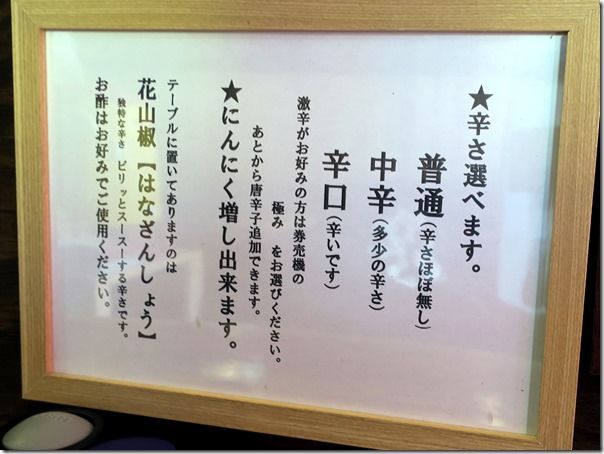 ★辛さ選べます。
普通(辛さほぼ無し)
中辛(多少の辛さ)
辛口(辛いです)
激辛がお好みの方は券売機の
極み をお選びください。
あとから唐辛子追加できます。
★にんにく増し出来ます。
テーブルに置いてありますのは
花山椒【はなざんしょう】
独特な辛さ ピリッとスースーする辛さです。
お酢はお好みでご使用ください。